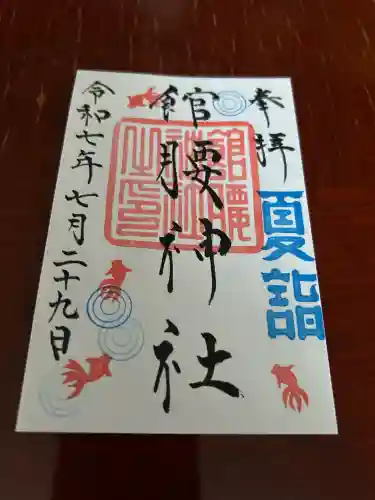 奉拝
夏詣
館腰神社
令和七年七月二十九日